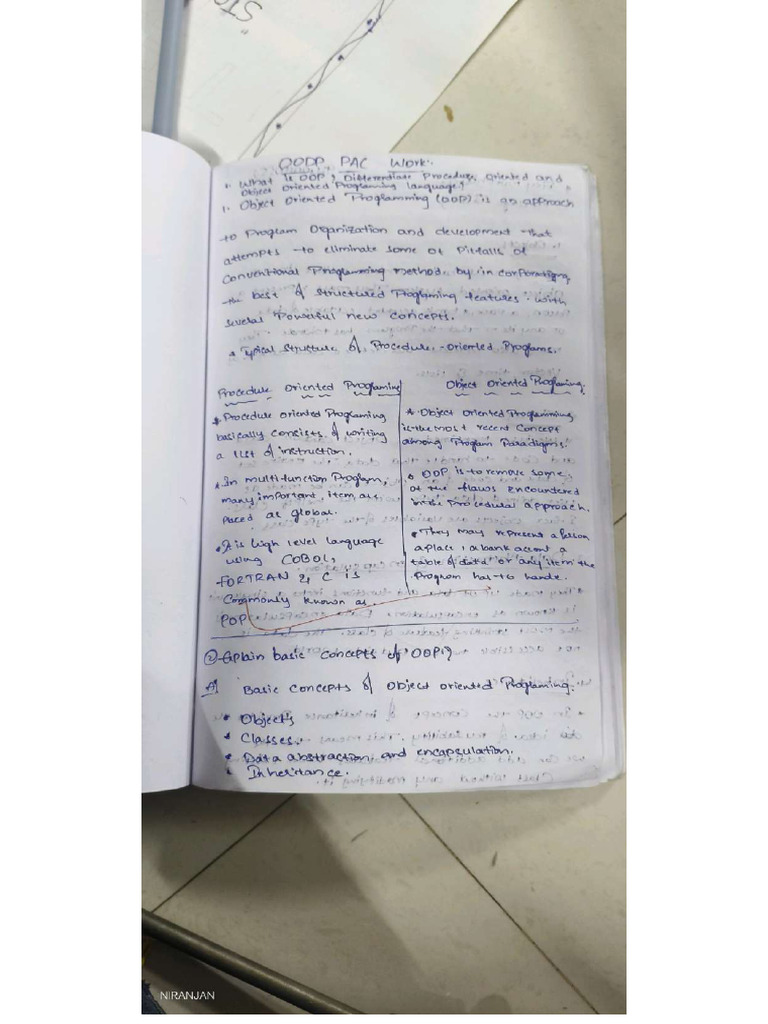 "STO
OODP PAC Work:
1. What is OOP? Differentiate Procedure, Oriented and
Object Oriented Programing language?
1. Object Oriented Programming (OOP) is an approach
to Program Organization and development that
attempts to eliminate some of Pitfalls of
Conventional Programming method, by in corporationg
the best of structured Programing features with
several Powerful new concepts.
* Typical structure of, Procedure - Oriented Programs.
Procedure Oriented Programing
* Procedure oriented Programing
basically consists of writing
a list of instruction.
* In multifunction Program,
many important item are
Placed as global.
* It is high level language
using COBOL,
FORTRAN & C is
Commonly known as
POP
Object Oriented Programing
* Object Oriented Programming
is the most recent Concept
among Program Paradigms.
* OOP is to remove some
of the flaws encountered
in the Procedural approach.
* They may represent a Person
a place, a bank account a
table of data or any item the
Program has to handle.
② Explain basic Concepts of OOP?
A) Basic Concepts of Object oriented Programing.
* Object's
* Classes.
* Data abstraction and encapsulation.
* Inheritance.
NIRANJAN